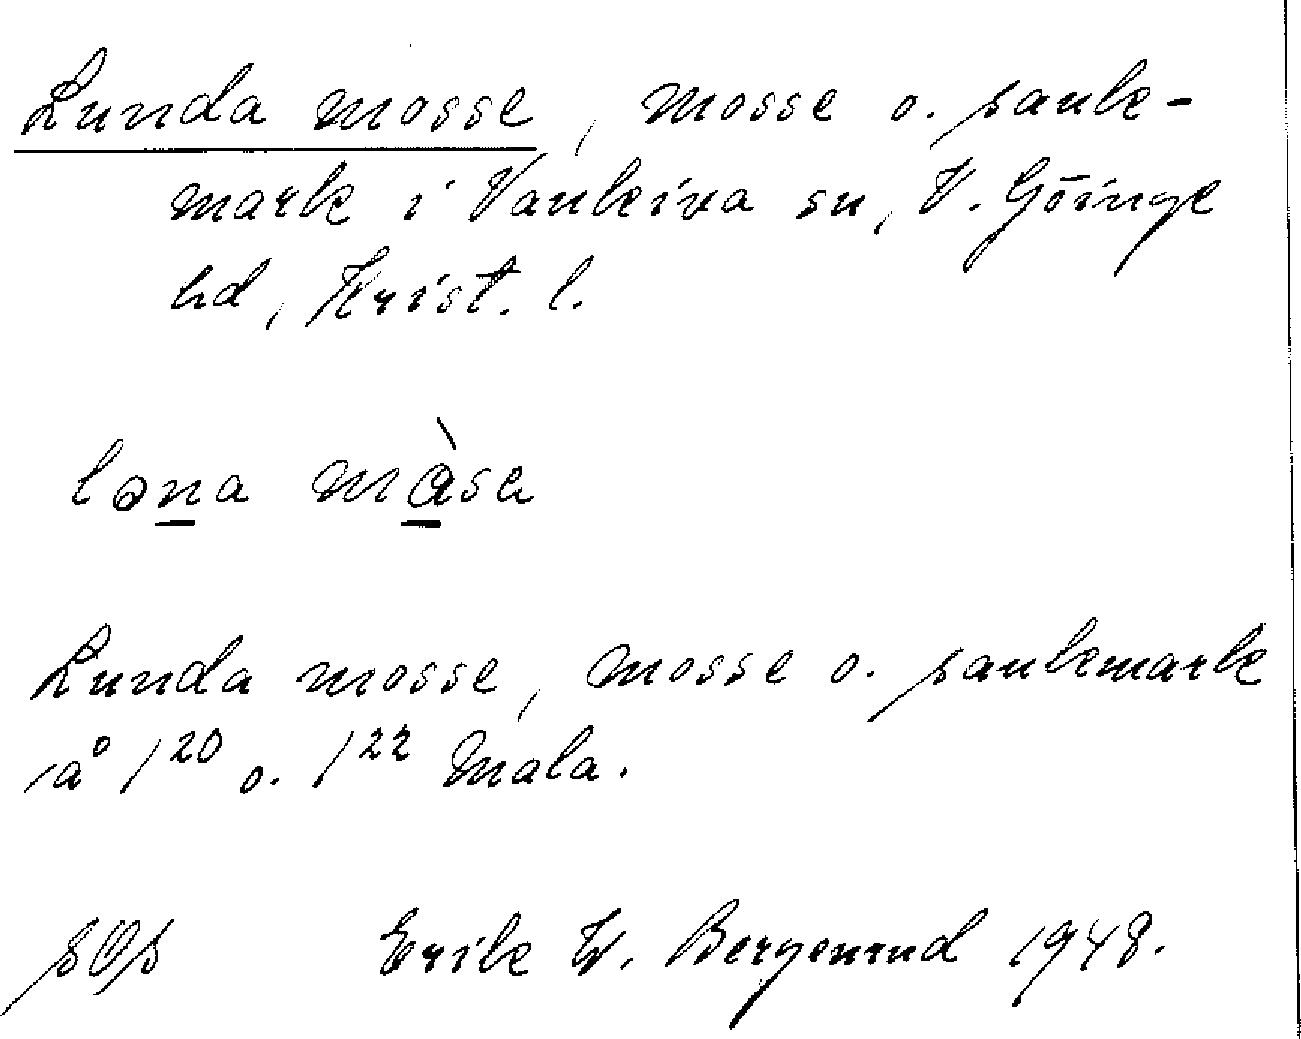 Lunda mosse, mosse o. sank-
mark i Vankiva sn, V. Göinge
hd, Krist. l.
lona màsa
Lunda mosse, mosse o. sankmark
å 1²⁰ o. 1²² Mala.
Erik W. Bergenrud 1948.